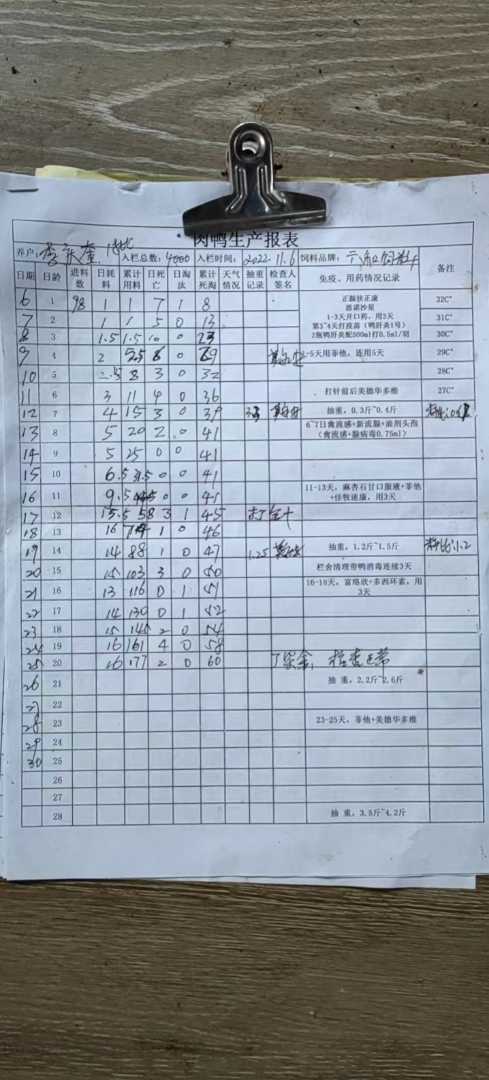 肉鸭生产报表
养户: 入栏总数: 4000 入栏时间: 2022.11.6 饲料品牌:
日期 日龄 进料数 日耗料 累计用料 日死亡 日淘汰 累计死淘 天气情况 抽重记录 检查人签名 免疫、用药情况记录 备注
6 1 98 1 1 7 1 8 正脲扶正康 32C°
恩诺沙星
7 2 1 1 5 0 13 1-3天开口药,用3天 31C°
第3~4天打疫苗(鸭肝炎1号)
8 3 1.5 1.5 10 0 23 2瓶鸭肝炎配500ml打0.5ml/羽 30C°
9 4 2 8 6 0 29 -5天用筝他,连用5天 29C°
10 5 2.5 8 3 0 32 28C°
11 6 3 11 4 0 36 打针前后美德华多维 27C°
12 7 4 15 3 0 39 抽重,0.3斤~0.4斤
13 8 5 20 2 0 41 6~7日禽流感+新流腺+油剂头孢
(禽流感+腺病毒0.75ml)
14 9 5 25 0 0 41
15 10 6.5 31.5 0 0 41
16 11 9.5 0 0 41 11-13天,麻杏石甘口服液+筝他
+佳牧速康,用3天
17 12 13.5 58 3 1 45 打针
18 13 16 74 1 0 46
19 14 14 88 1 0 47 1.25 抽重,1.2斤~1.5斤 料比:1.2
20 15 15 103 3 0 50 栏舍清理带鸭消毒连续3天
21 16 13 116 0 1 51 16-18天,富络欣+多西环素,用
3天
22 17 14 130 0 1 52
23 18 15 145 2 0 54
24 19 16 161 4 0 58
25 20 16 177 2 0 60 检查正常
26 21 抽重,2.2斤~2.6斤
27 22
28 23 23-25天,筝他+美德华多维
29 24
30 25
26
27
28 抽重,3.5斤~4.2斤